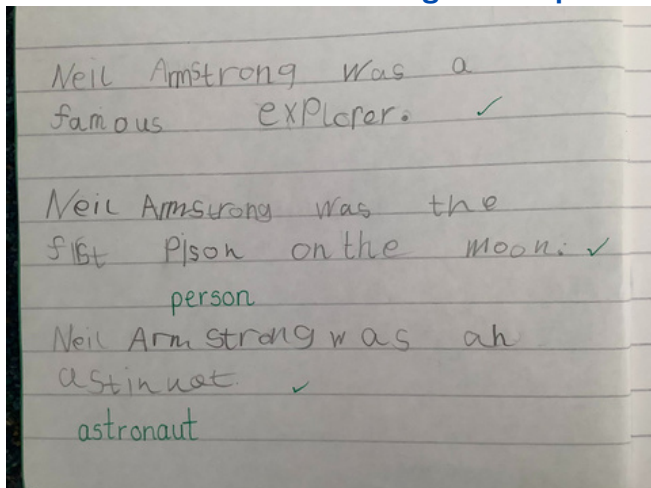 Neil Armstrong was a
famous explorer. ✓
Neil Armstrong was the
fist pison on the moon. ✓
person
Neil Arm strong was an
astinuat. ✓
astronaut